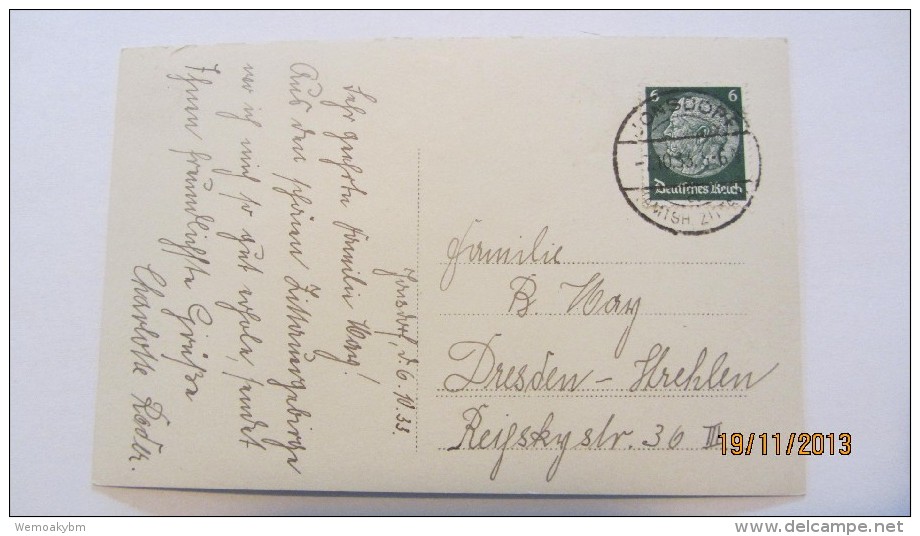 Jonsdorf, d. 6. 10. 33.
Sehr geehrte Familie Way!
Aus dem schönen Zittauergebirge
wo ich mich so gut erhole, sendet
Ihnen freundlichste Grüße
Charlotte Roder.
6 6
Deutsches Reich
JONSDORF
10.33. 5-6
Familie
B. Way
Dresden - Strehlen
Reißkystr. 36 III
19/11/2013
Wemoakybm
www.delcampe.net